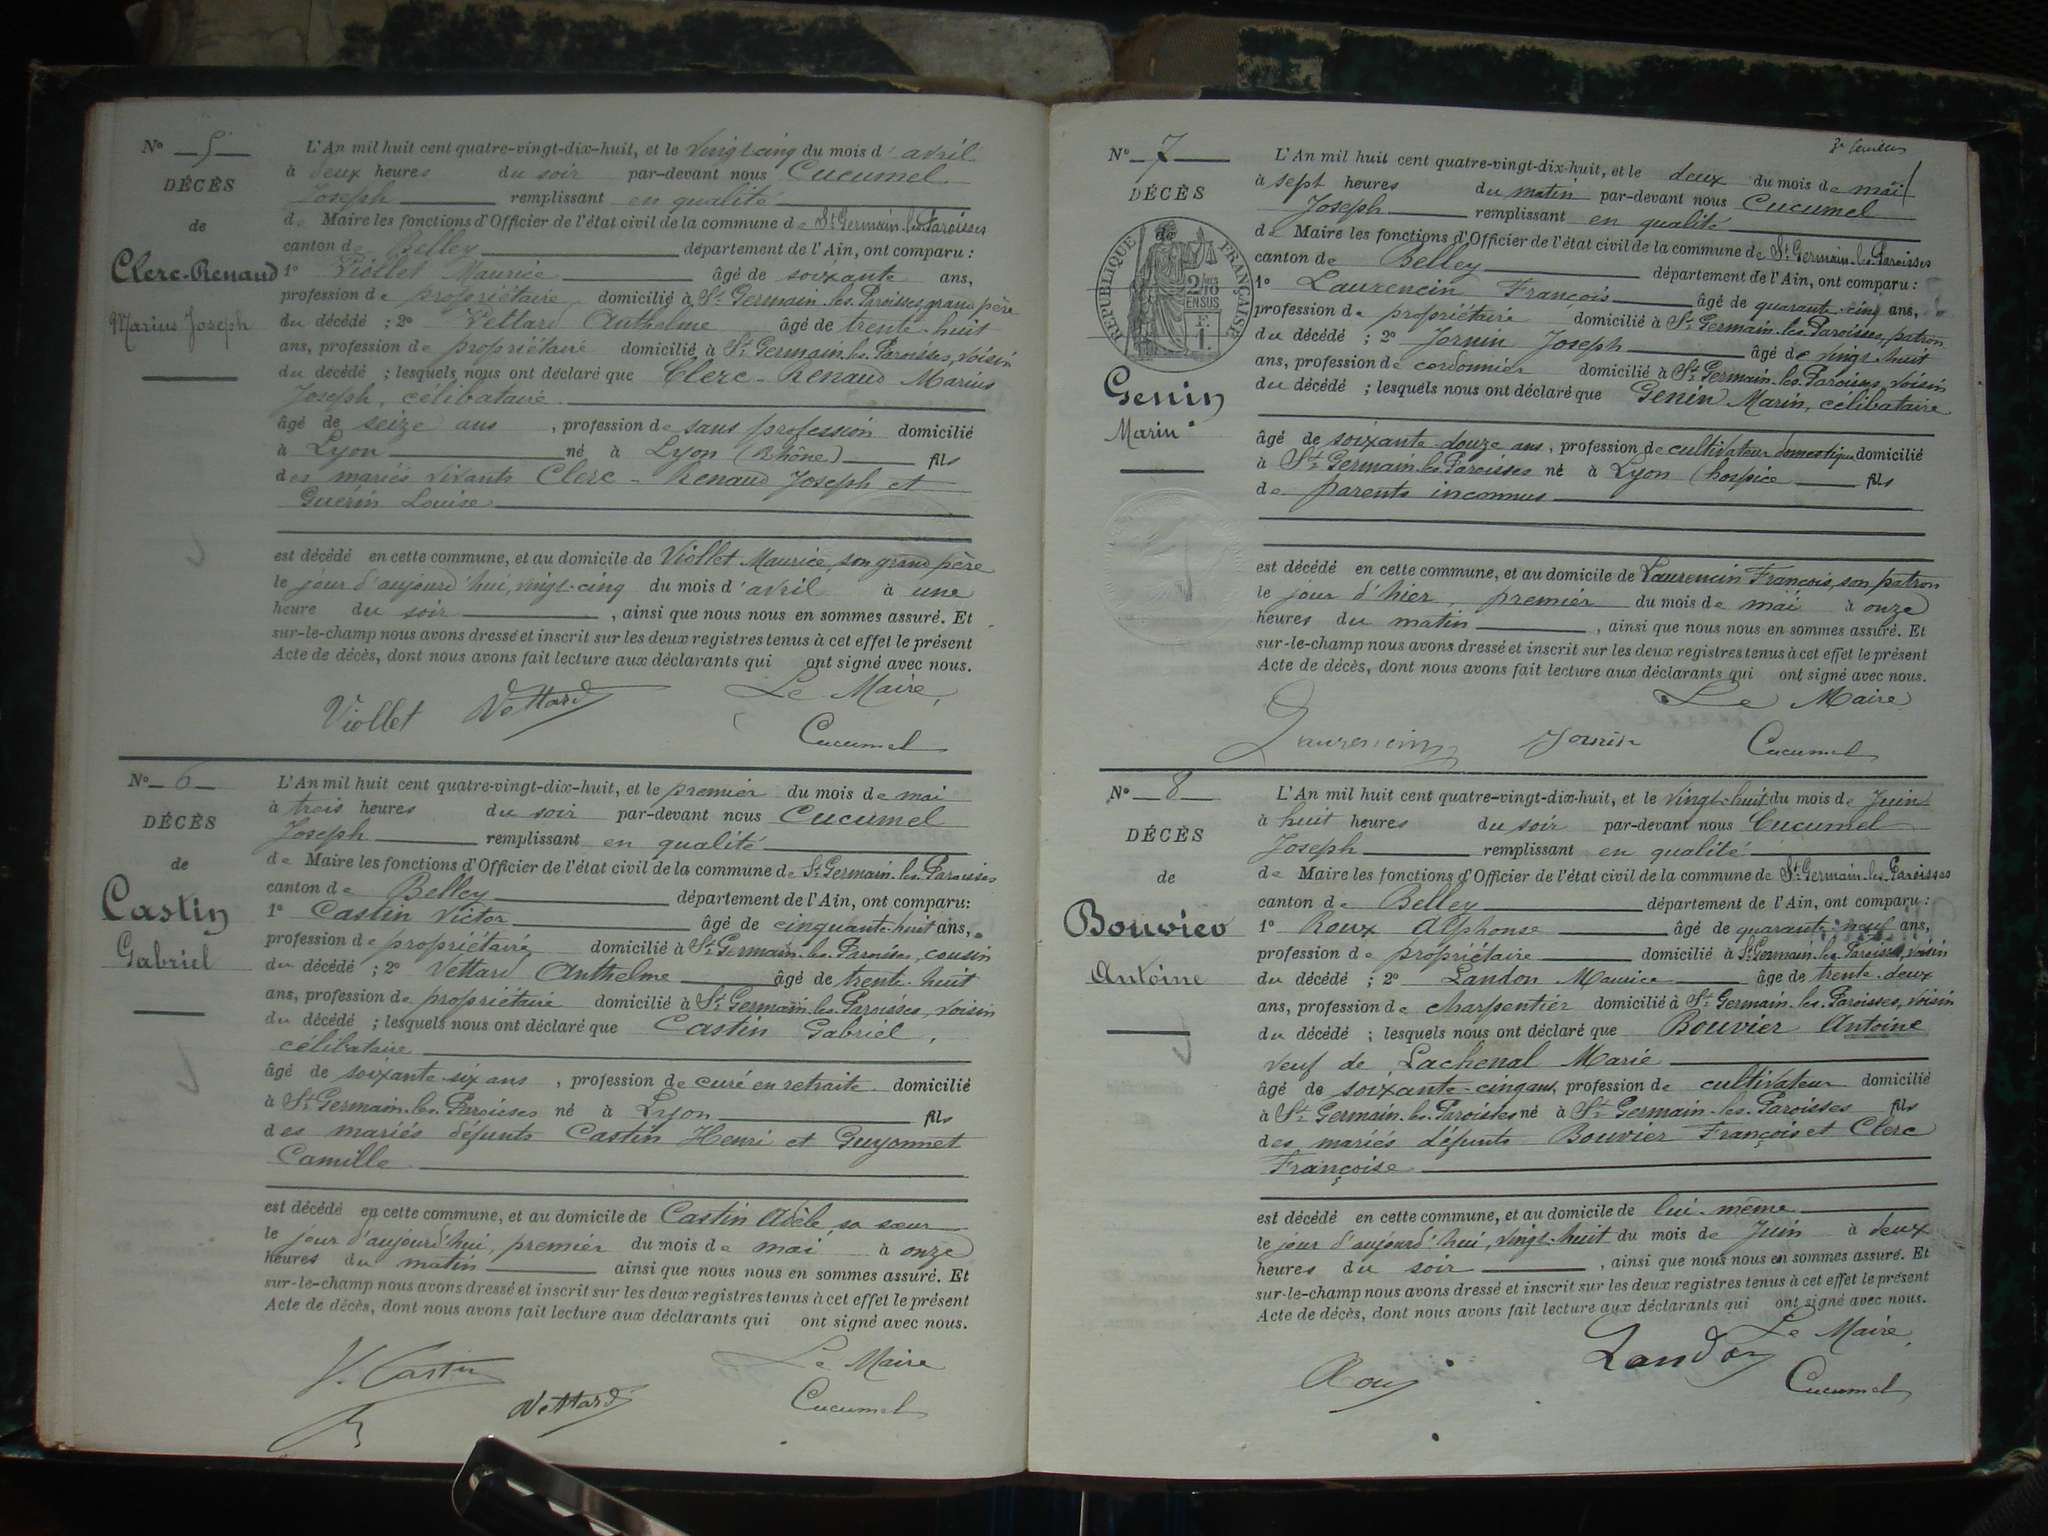 No 5
DÉCÈS
de
Clerc-Renaud
Marius Joseph
L'An mil huit cent quatre-vingt-dix-huit, et le vingt-cinq du mois d'avril
à deux heures du soir par-devant nous Cucumel
Joseph remplissant en qualité
de Maire les fonctions d'Officier de l'état civil de la commune de St Germain-les-Paroisses
canton de Belley département de l'Ain, ont comparu :
1o Viollet Maurice âgé de soixante ans,
profession de propriétaire, domicilié à St Germain-les-Paroisses, grand père
du décédé ; 2o Vettard Anthelme âgé de trente-huit
ans, profession de propriétaire domicilié à St Germain-les-Paroisses, voisin
du décédé ; lesquels nous ont déclaré que Clerc-Renaud Marius
Joseph, célibataire
âgé de seize ans, profession de sans profession domicilié
à Lyon né à Lyon (Rhône) fils
des mariés vivants Clerc-Renaud Joseph et
Guérin Louise
est décédé en cette commune, et au domicile de Viollet Maurice, son grand père
le jour d'aujourd'hui, vingt-cinq du mois d'avril à une
heure du soir, ainsi que nous nous en sommes assuré. Et
sur-le-champ nous avons dressé et inscrit sur les deux registres tenus à cet effet le présent
Acte de décès, dont nous avons fait lecture aux déclarants qui ont signé avec nous.
Le Maire,
Viollet Vettard Cucumel
No 6
DÉCÈS
de
Castin
Gabriel
L'An mil huit cent quatre-vingt-dix-huit, et le premier du mois de mai
à trois heures du soir par-devant nous Cucumel
Joseph remplissant en qualité
de Maire les fonctions d'Officier de l'état civil de la commune de St Germain-les-Paroisses
canton de Belley département de l'Ain, ont comparu:
1o Castin Victor âgé de cinquante-huit ans,
profession de propriétaire domicilié à St Germain-les-Paroisses, cousin
du décédé ; 2o Vettard Anthelme âgé de trente-huit
ans, profession de propriétaire domicilié à St Germain-les-Paroisses, voisin
du décédé ; lesquels nous ont déclaré que Castin Gabriel,
célibataire
âgé de soixante-six ans, profession de curé en retraite domicilié
à St Germain-les-Paroisses né à Lyon fils
des mariés défunts Castin Henri et Guyonnet
Camille
est décédé en cette commune, et au domicile de Castin Adèle sa sœur
le jour d'aujourd'hui, premier du mois de mai à onze
heures du matin ainsi que nous nous en sommes assuré. Et
sur-le-champ nous avons dressé et inscrit sur les deux registres tenus à cet effet le présent
Acte de décès, dont nous avons fait lecture aux déclarants qui ont signé avec nous.
Le Maire
V. Castin Vettard Cucumel
No 7
DÉCÈS
de
RÉPUBLIQUE FRANÇAISE
2/10 EN SUS
Genin
Marin
L'An mil huit cent quatre-vingt-dix-huit, et le deux du mois de mai
à sept heures du matin par-devant nous Cucumel
Joseph remplissant en qualité
de Maire les fonctions d'Officier de l'état civil de la commune de St Germain-les-Paroisses
canton de Belley département de l'Ain, ont comparu :
1o Laurencin François âgé de quarante-cinq ans,
profession de propriétaire domicilié à St Germain-les-Paroisses, patron
du décédé ; 2o Jornin Joseph âgé de vingt-huit
ans, profession de cordonnier domicilié à St Germain-les-Paroisses, voisin
du décédé ; lesquels nous ont déclaré que Genin Marin, célibataire
âgé de soixante-douze ans, profession de cultivateur domestique domicilié
à St Germain-les-Paroisses né à Lyon (hospice fils
de parents inconnus
est décédé en cette commune, et au domicile de Laurencin François, son patron
le jour d'hier, premier du mois de mai à onze
heures du matin, ainsi que nous nous en sommes assuré. Et
sur-le-champ nous avons dressé et inscrit sur les deux registres tenus à cet effet le présent
Acte de décès, dont nous avons fait lecture aux déclarants qui ont signé avec nous.
Le Maire
Laurencin Jornin Cucumel
No 8
DÉCÈS
de
Bouvier
Antoine
L'An mil huit cent quatre-vingt-dix-huit, et le vingt-huit du mois de Juin
à huit heures du soir par-devant nous Cucumel
Joseph remplissant en qualité
de Maire les fonctions d'Officier de l'état civil de la commune de St Germain-les-Paroisses
canton de Belley département de l'Ain, ont comparu :
1o Roux Alphonse âgé de quarante-neuf ans,
profession de propriétaire domicilié à St Germain-les-Paroisses, voisin
du décédé ; 2o Landon Maurice âgé de trente-deux
ans, profession de charpentier domicilié à St Germain-les-Paroisses, voisin
du décédé ; lesquels nous ont déclaré que Bouvier Antoine
veuf de Lachenal Marie
âgé de soixante-cinq ans, profession de cultivateur domicilié
à St Germain-les-Paroisses né à St Germain-les-Paroisses fils
des mariés défunts Bouvier François et Clerc
Françoise
est décédé en cette commune, et au domicile de lui-même
le jour d'aujourd'hui, vingt-huit du mois de Juin à deux
heures du soir, ainsi que nous nous en sommes assuré. Et
sur-le-champ nous avons dressé et inscrit sur les deux registres tenus à cet effet le présent
Acte de décès, dont nous avons fait lecture aux déclarants qui ont signé avec nous.
Le Maire
Roux Landon Cucumel